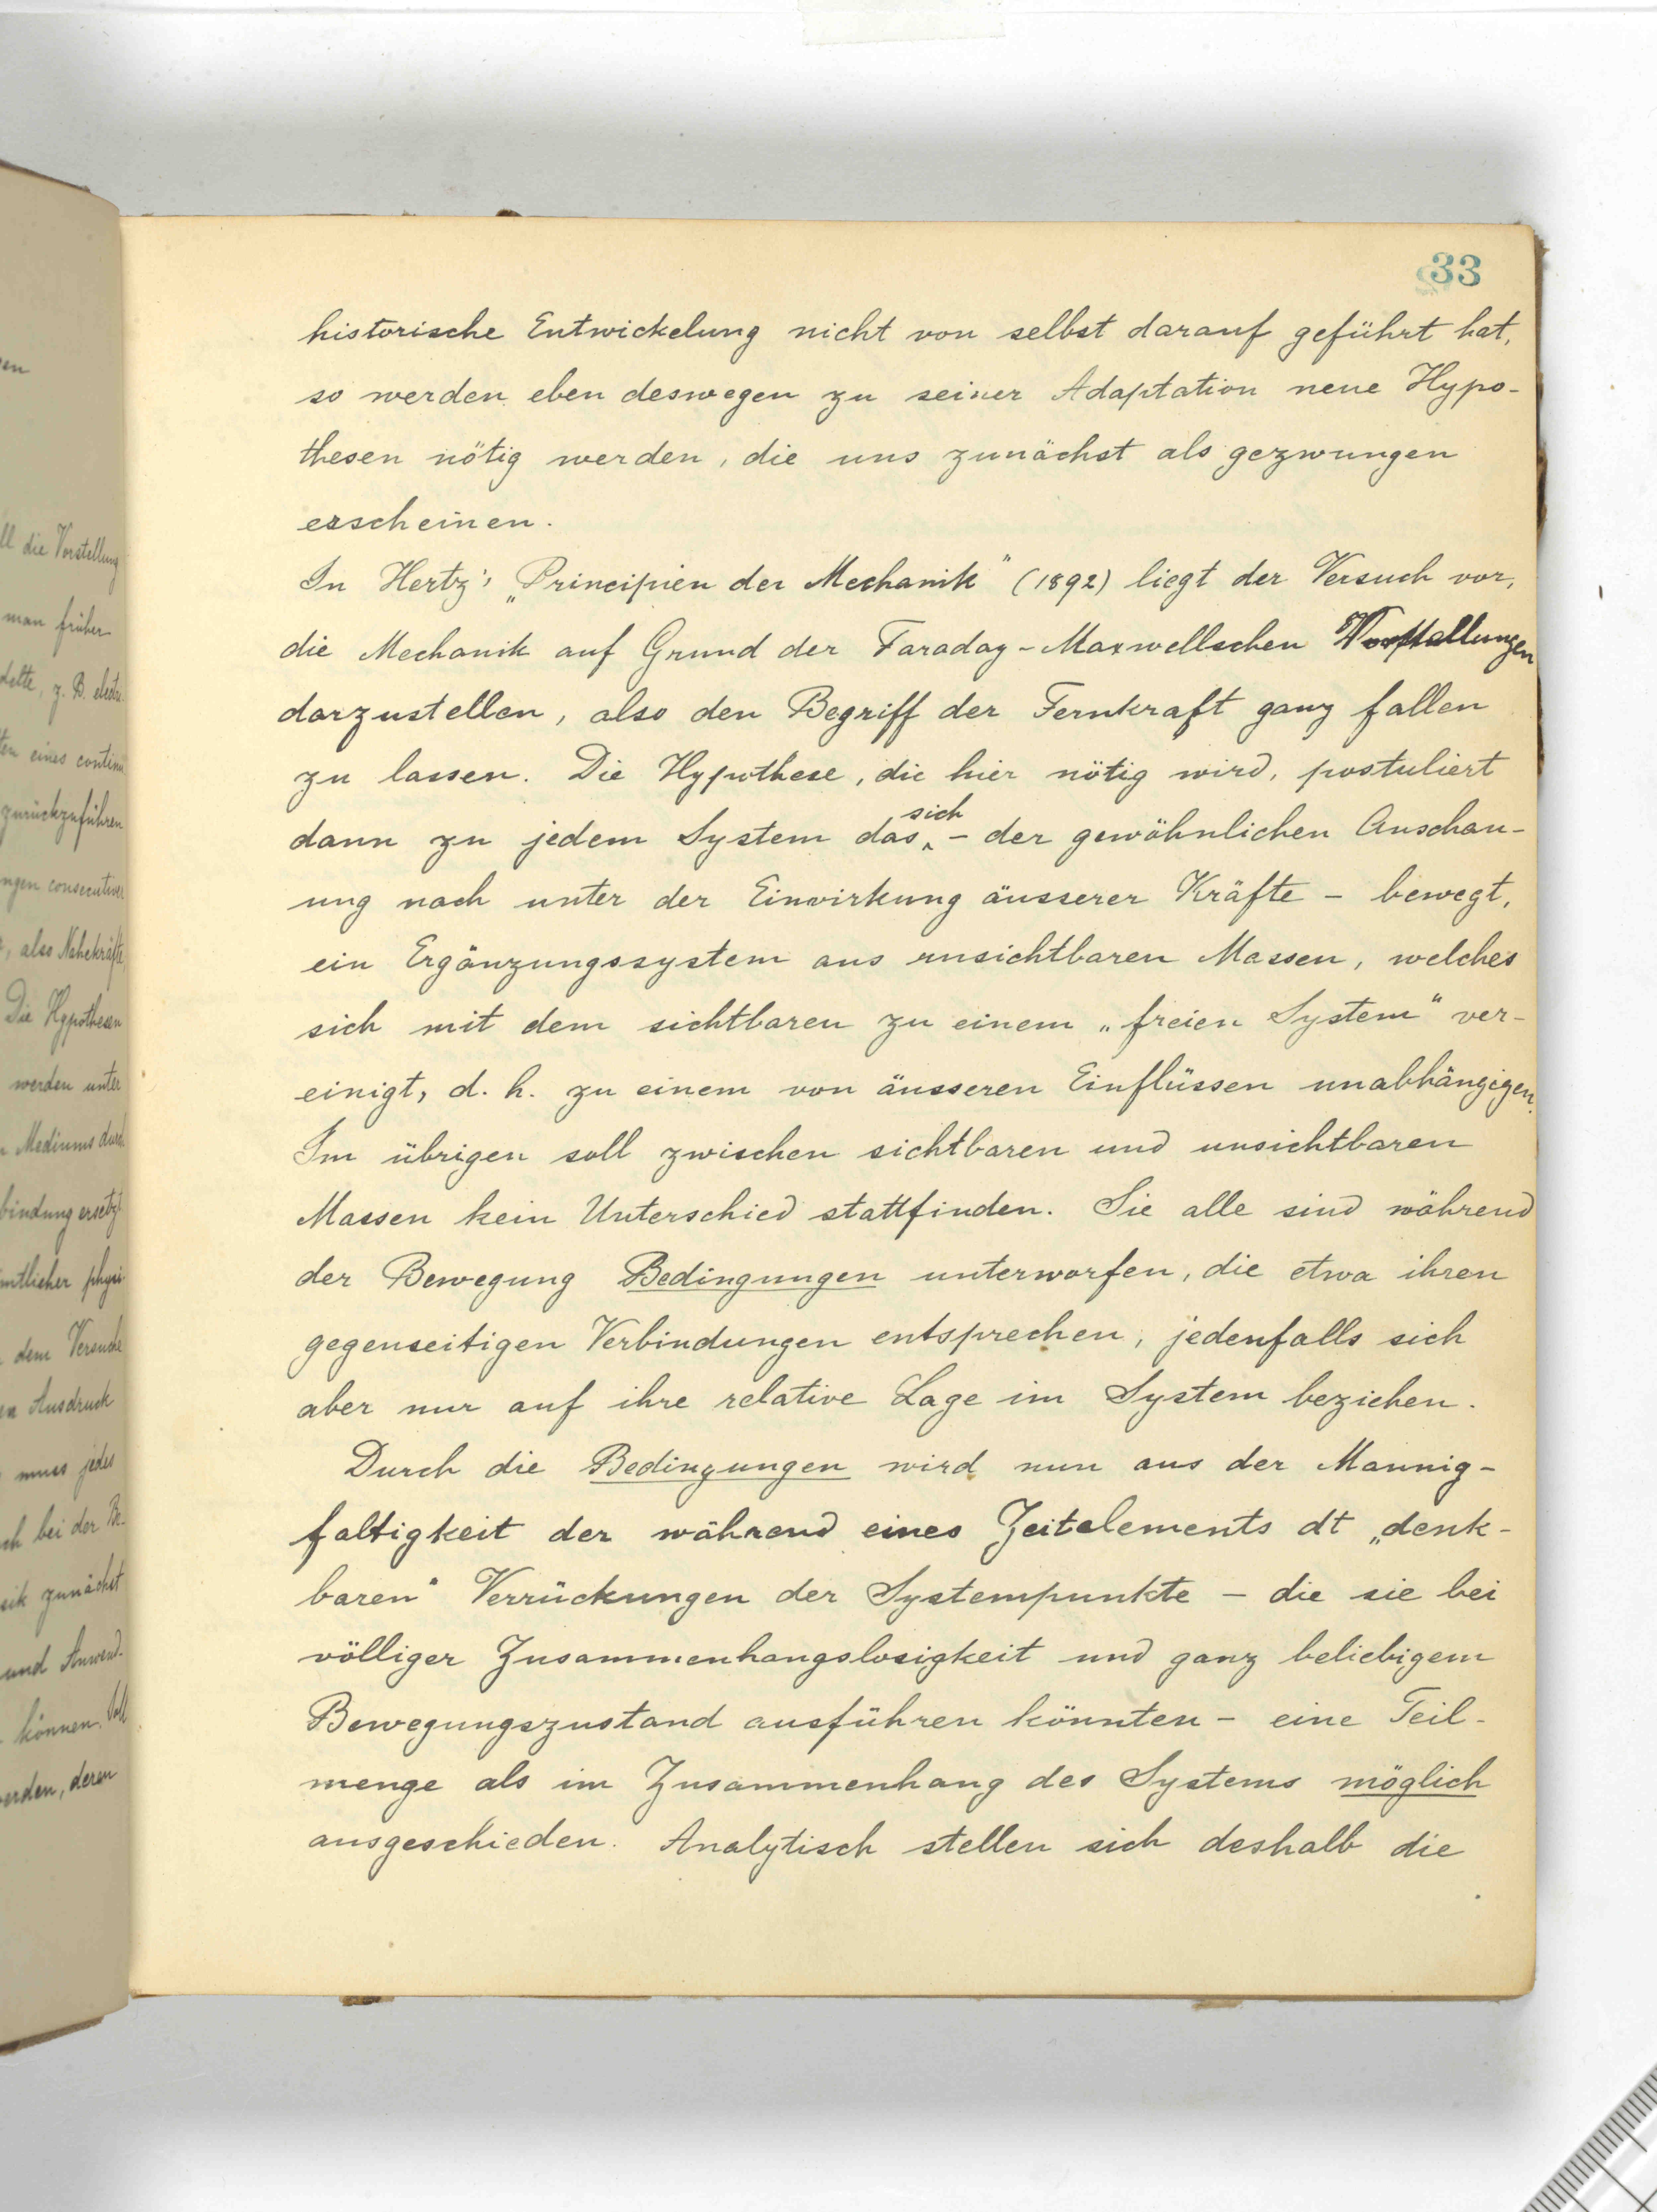 33
historische Entwickelung nicht von selbst darauf geführt hat,
so werden eben deswegen zu seiner Adaptation neue Hypo-
thesen nötig werden, die uns zunächst als gezwungen
erscheinen.
In Hertz', „Principien der Mechanik" (1892) liegt der Versuch vor,
die Mechanik auf Grund der Faraday-Maxwellschen Vorstellungen
darzustellen, also den Begriff der Fernkraft ganz fallen
zu lassen. Die Hypothese, die hier nötig wird, postuliert
dann zu jedem System das sich - der gewöhnlichen Anschau-
ung nach unter der Einwirkung äusserer Kräfte - bewegt,
ein Ergänzungssystem aus unsichtbaren Massen, welches
sich mit dem sichtbaren zu einem „freien System" ver-
einigt, d. h. zu einem von äusseren Einflüssen unabhängigen.
Im übrigen soll zwischen sichtbaren und unsichtbaren
Massen kein Unterschied stattfinden. Sie alle sind während
der Bewegung Bedingungen unterworfen, die etwa ihren
gegenseitigen Verbindungen entsprechen, jedenfalls sich
aber nur auf ihre relative Lage im System beziehen.
Durch die Bedingungen wird nun aus der Mannig-
faltigkeit der während eines Zeitelements dt „denk-
baren" Verrückungen der Systempunkte - die sie bei
völliger Zusammenhangslosigkeit und ganz beliebigem
Bewegungszustand ausführen könnten - eine Teil-
menge als im Zusammenhang des Systems möglich
ausgeschieden. Analytisch stellen sich deshalb die
ll die Vorstellung
man früher
z. B. electr.
eines continu
zurückzuführen
consecutiver
also Nahekräfte
Die Hypothesen
werden unter
Mediums durch
bindung ersetzt
mtlicher physi-
dem Versuche
Ausdruck
muss jedes
ch bei der Be-
sik zunächst
und Anwend-
können.
erden, deren